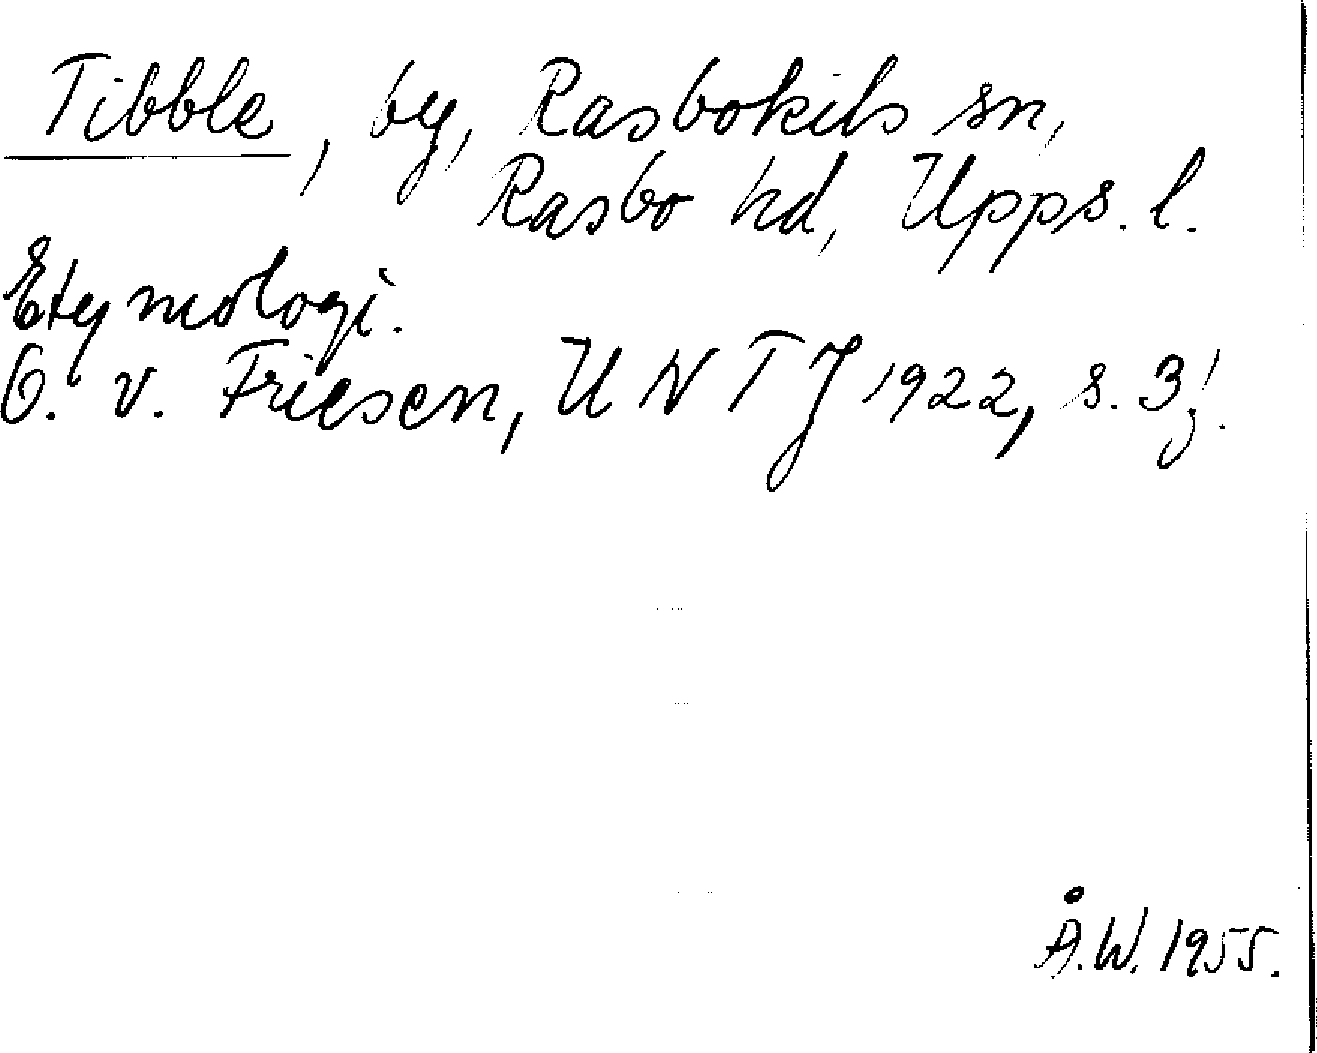 Tibble, by, Rasbokils sn,
Rasbo hd, Upps. l.
Etymologi.
O. v. Friesen, UNTJ 1922, s. 3
Å.W. 1955.